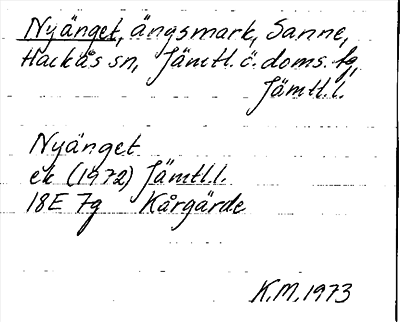 Nyänget, ängsmark, Sanne,
Hackås sn, Jämtl. ö. doms. fg,
Jämtl.l.
Nyänget
ek (1972) Jämtl.l.
18E 7g Kårgärde
K.M. 1973